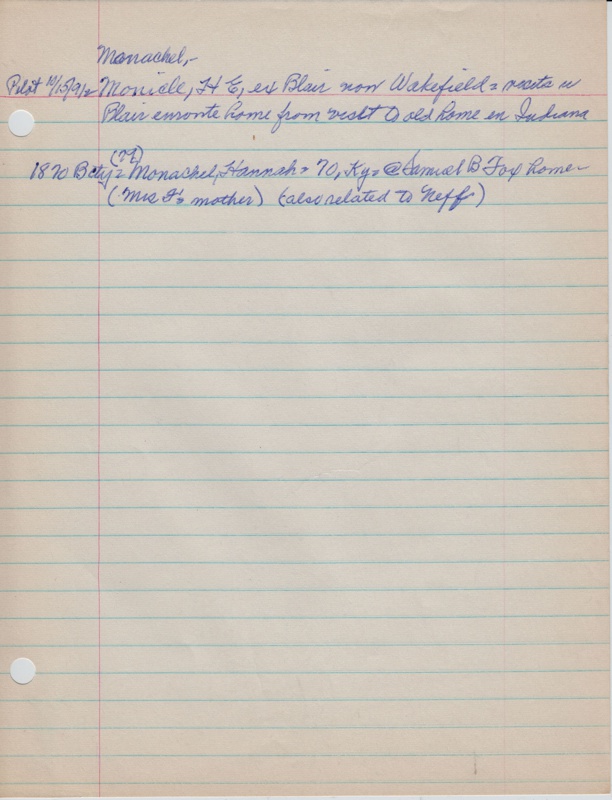 Monachel,-
Pilot 10/15/1912 Monicle, H E, ex Blair now Wakefield = visits in
Blair enroute home from visit to old home en Indiana
(N)
1870 = Monachel, Hannah = 70, Ky = @ Samuel B Fox home -
(Mrs F's mother) (also related to Neff)